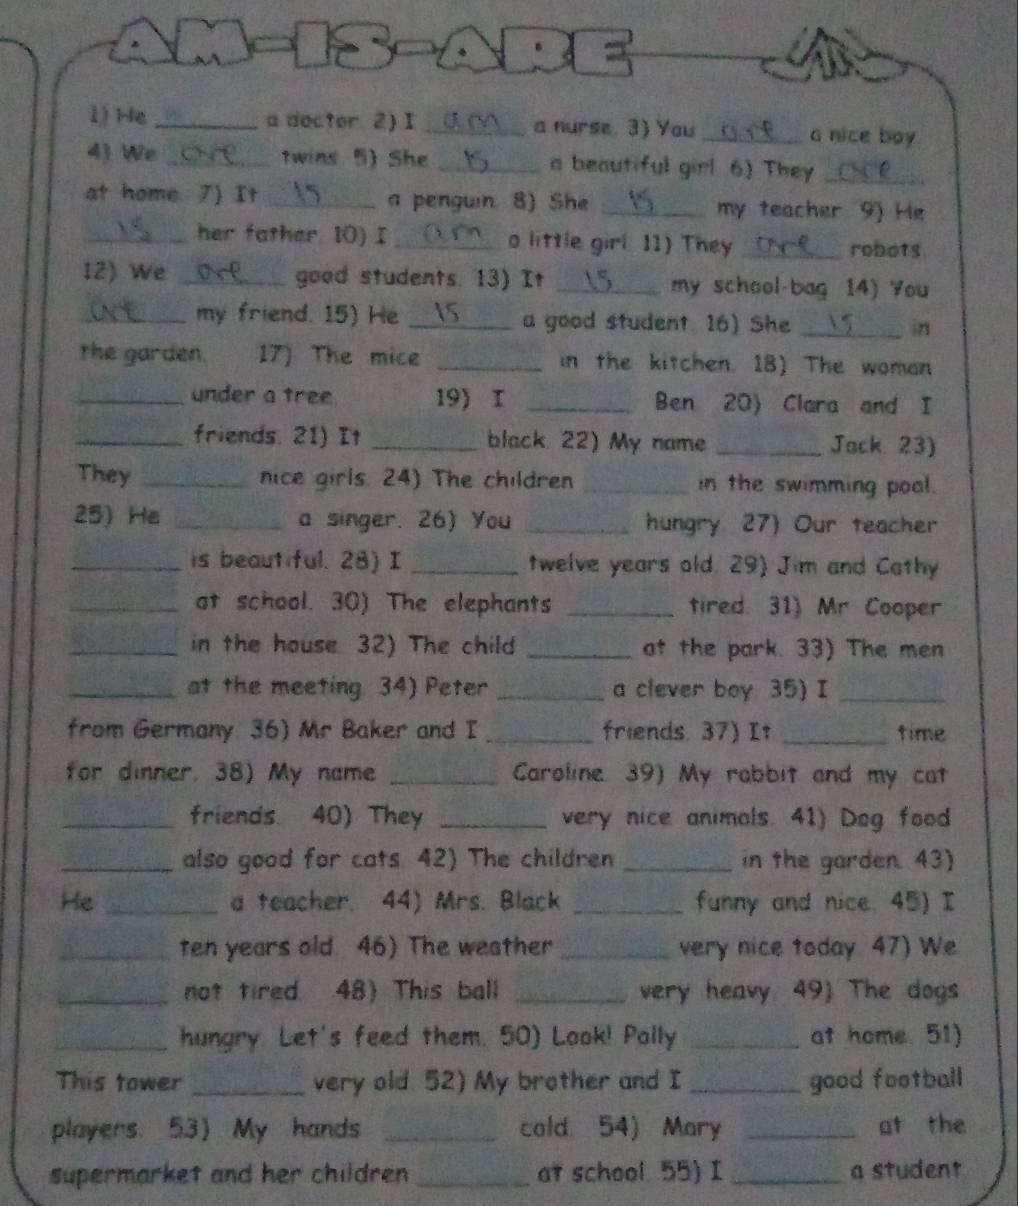 AM-IS-ARE
1) He ________ a doctor 2) I am a nurse. 3) You are a nice boy
4) We are twins 5) She is a beautiful girl 6) They are
at home 7) It is a penguin. 8) She is my teacher 9) He
is her father 10) I am a little girl 11) They are robots.
12) We are good students. 13) It is my school-bag 14) You
are my friend. 15) He is a good student. 16) She is in
the garden. 17) The mice ________ in the kitchen. 18) The woman
________ under a tree. 19) I ________ Ben 20) Clara and I
________ friends. 21) It ________ black. 22) My name ________ Jack. 23)
They ________ nice girls. 24) The children ________ in the swimming pool.
25) He ________ a singer. 26) You ________ hungry. 27) Our teacher
________ is beautiful. 28) I ________ twelve years old. 29) Jim and Cathy
________ at school. 30) The elephants ________ tired. 31) Mr Cooper
________ in the house. 32) The child ________ at the park. 33) The men
________ at the meeting 34) Peter ________ a clever boy 35) I ________
from Germany. 36) Mr Baker and I ________ friends. 37) It ________ time
for dinner. 38) My name ________ Caroline. 39) My rabbit and my cat
________ friends. 40) They ________ very nice animals. 41) Dog food
________ also good for cats. 42) The children ________ in the garden. 43)
He ________ a teacher. 44) Mrs. Black ________ funny and nice. 45) I
________ ten years old. 46) The weather ________ very nice today 47) We
________ not tired. 48) This ball ________ very heavy. 49) The dogs
________ hungry. Let's feed them. 50) Look! Polly ________ at home. 51)
This tower ________ very old. 52) My brother and I ________ good football
players. 53) My hands ________ cold. 54) Mary ________ at the
supermarket and her children ________ at school. 55) I ________ a student